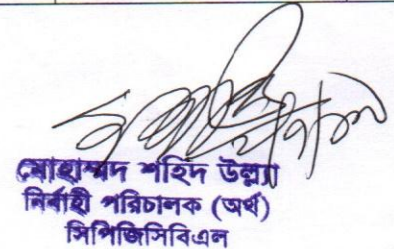 মোহাম্মদ শহিদ উল্ল্যা
নির্বাহী পরিচালক (অর্থ)
সিপিজিসিবিএল